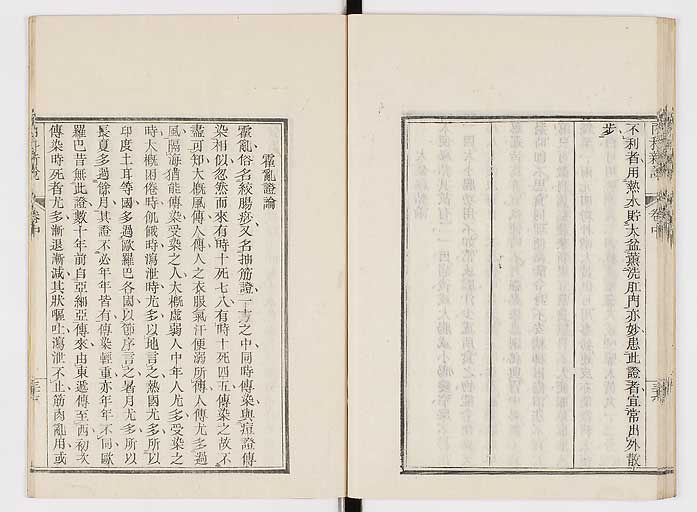 不利者用熱水貯大盆薰洗肛門亦妙患此證者宜常出外散
步
霍亂證論
霍亂俗名絞腸痧又名抽筋證一方之中同時傳染與瘟證傳
染相似忽然而來有時十死七八有時十死四五傳染之故不
盡可知大概風傳人傳人之衣服氣汗便溺所傳人傳尤多過
風隔海猶能傳染受染之人大概虛弱人中年人尤多受染之
時大概困倦時飢餓時瀉泄時尤多以地言之熱國尤多所以
印度土耳等國多過歐羅巴各國以節序言之暑月尤多所以
長夏多過餘月其證不必年年皆有傳染輕重亦年年不同歐
羅巴昔無此證數十年前自亞細亞傳來由東遞傳至西初次
傳染時死者尤多漸退漸減其狀嘔吐瀉泄不止筋肉亂用或